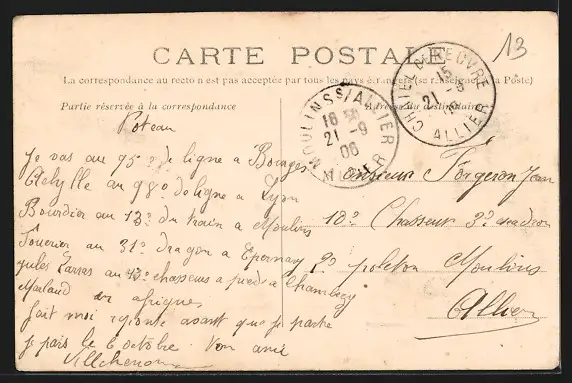 13
CARTE POSTALE
La correspondance au recto n'est pas acceptée par tous les pays étrangers (se renseigner à la Poste)
Partie réservée à la correspondance
Adresse du destinataire
CHATEL-DE-NEUVRE
21 -9
ALLIER
MOULINS S/ALLIER
18 30
21 -9
06
ALLIER
Poteau
Je vas au 95e de ligne a Bourges
Achylle au 98e de ligne a Lyon
Bourdier au 13e du train a Moulins
au 31e dragon a Epernay
Jules au chasseurs a pieds a Chambery
en afrique
fait moi reponse avant que je parte
je pars le 6 octobre Ton ami
Monsieur Forgeron Jean
10e Chasseur 3e escadron
2e peloton Moulins
Allier